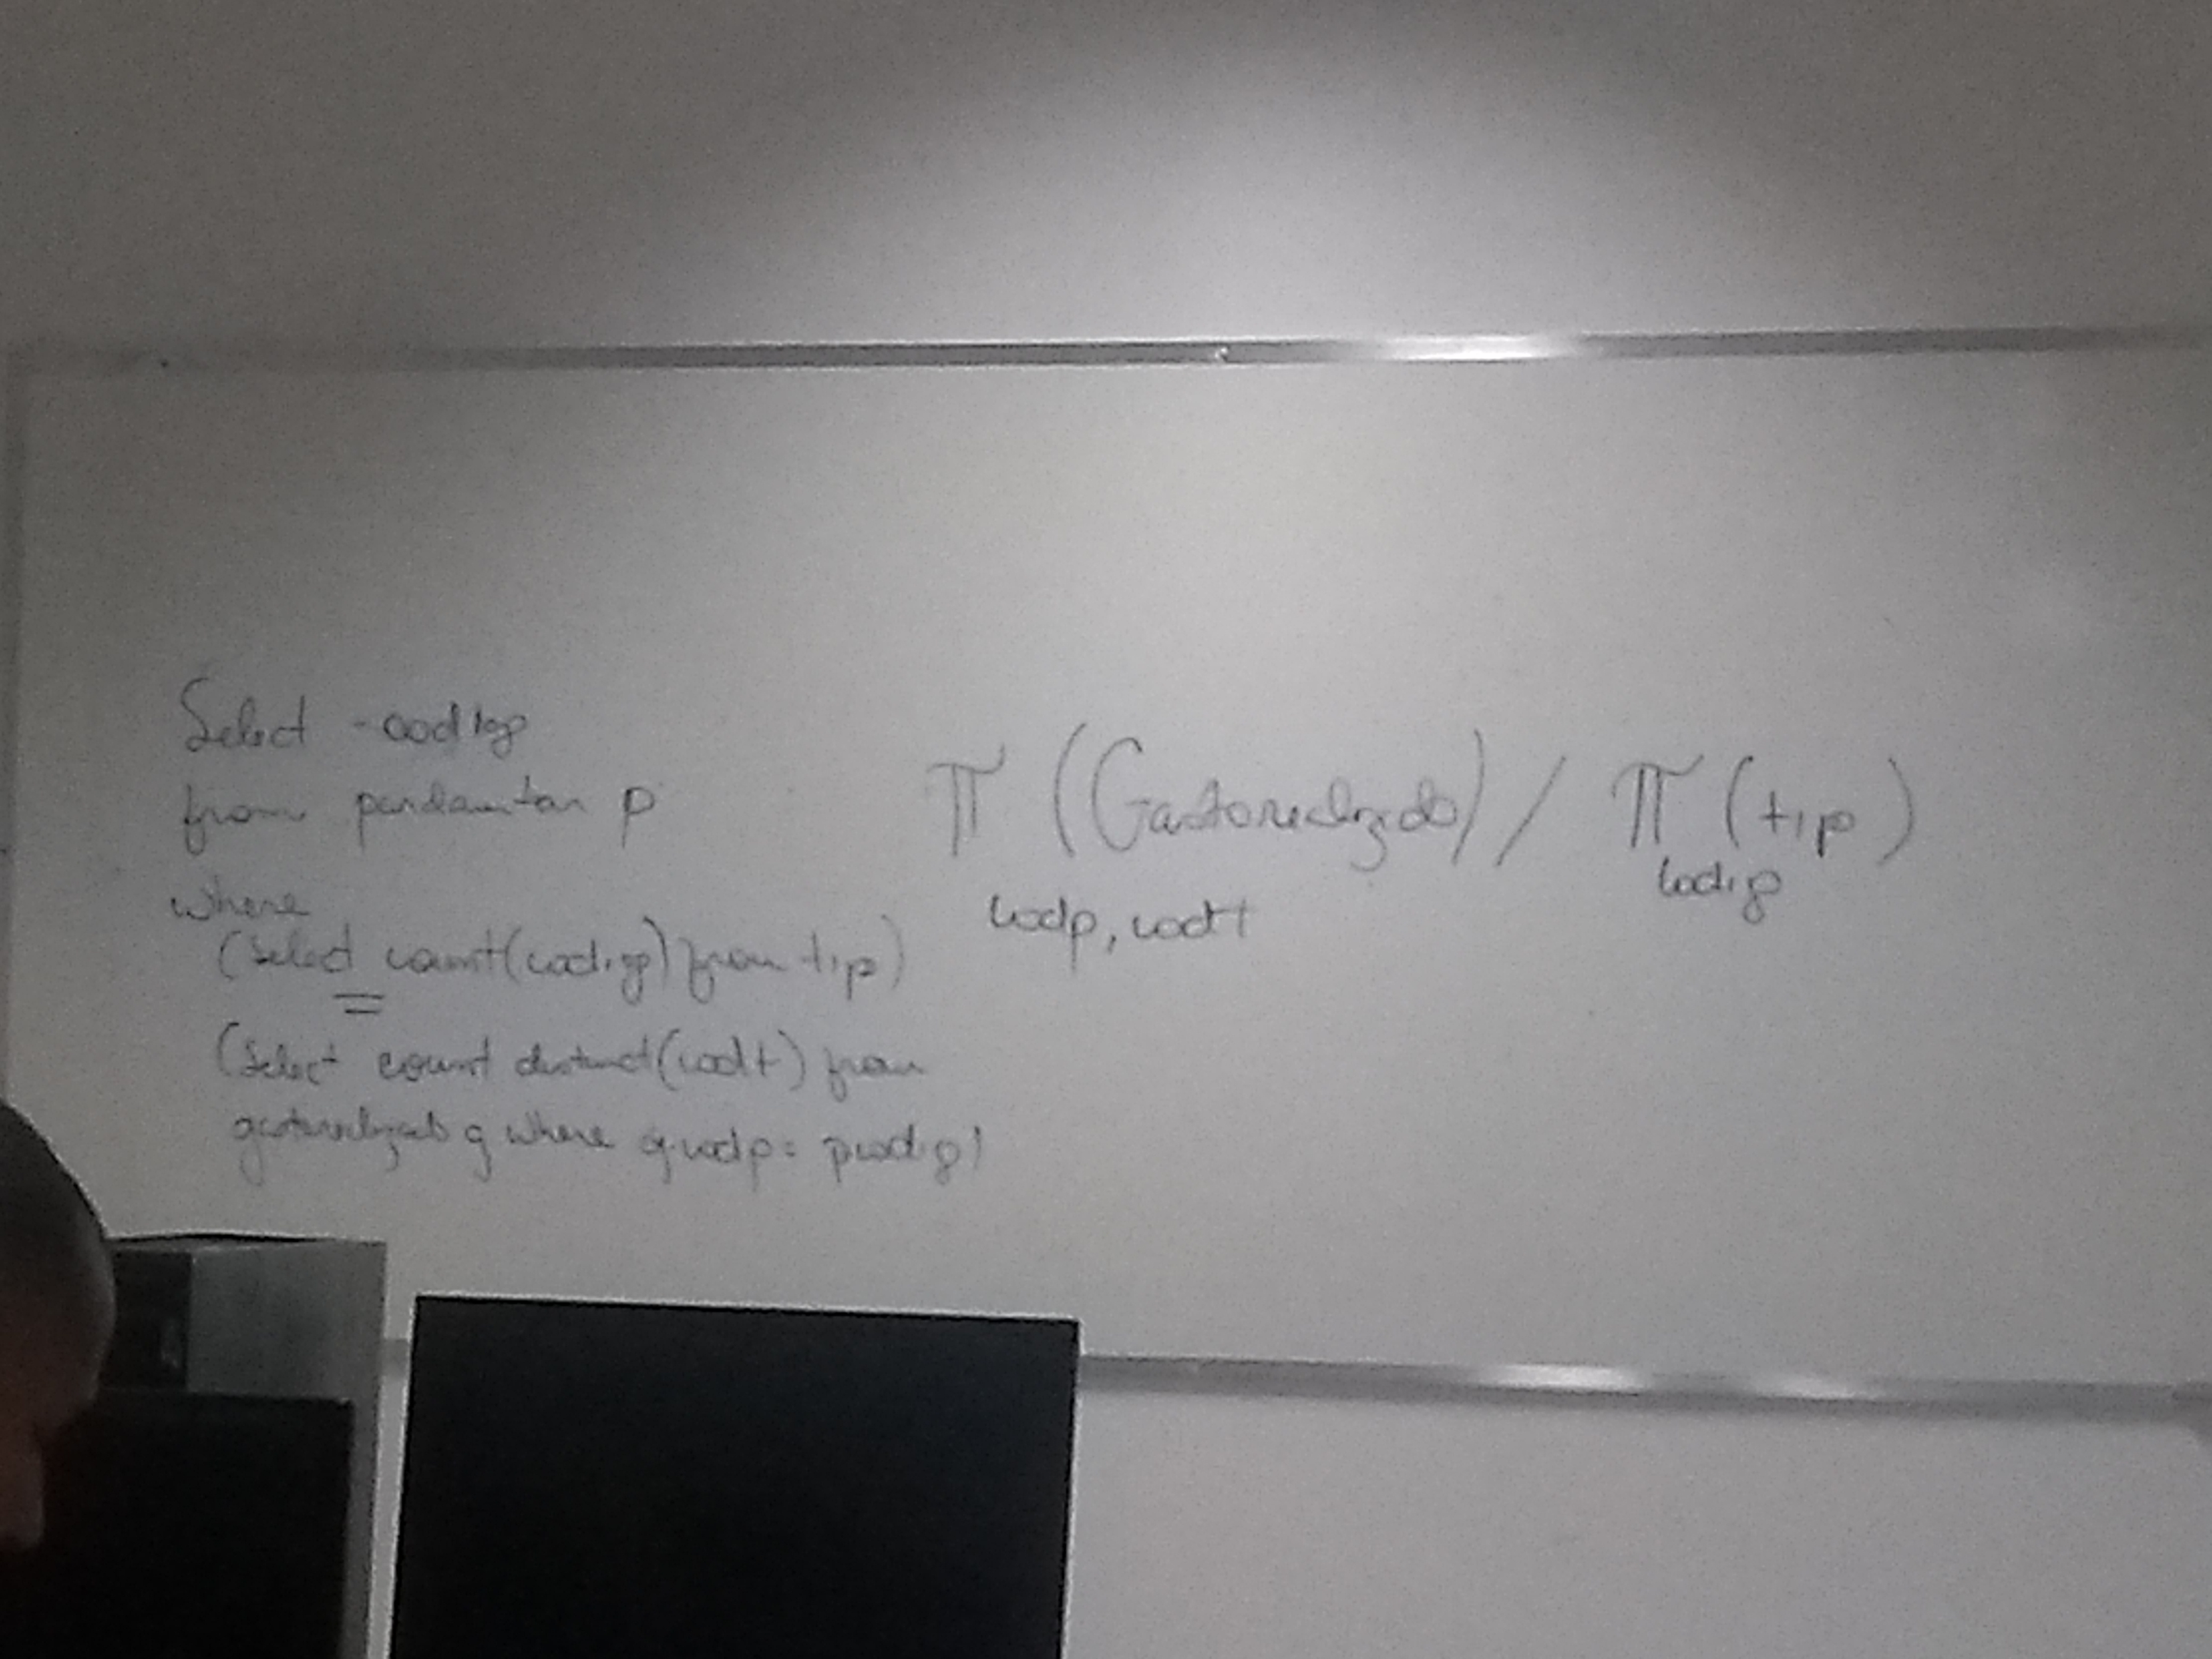 Select codigo
from parlamentar p
where
(Select count(codigo) from tipo)
=
(Select count distinct(codt) from
gastorealizado g where g.codp = p.codigo)
π (Gastorealizado) / π (tipo)
codp, codt
codigo